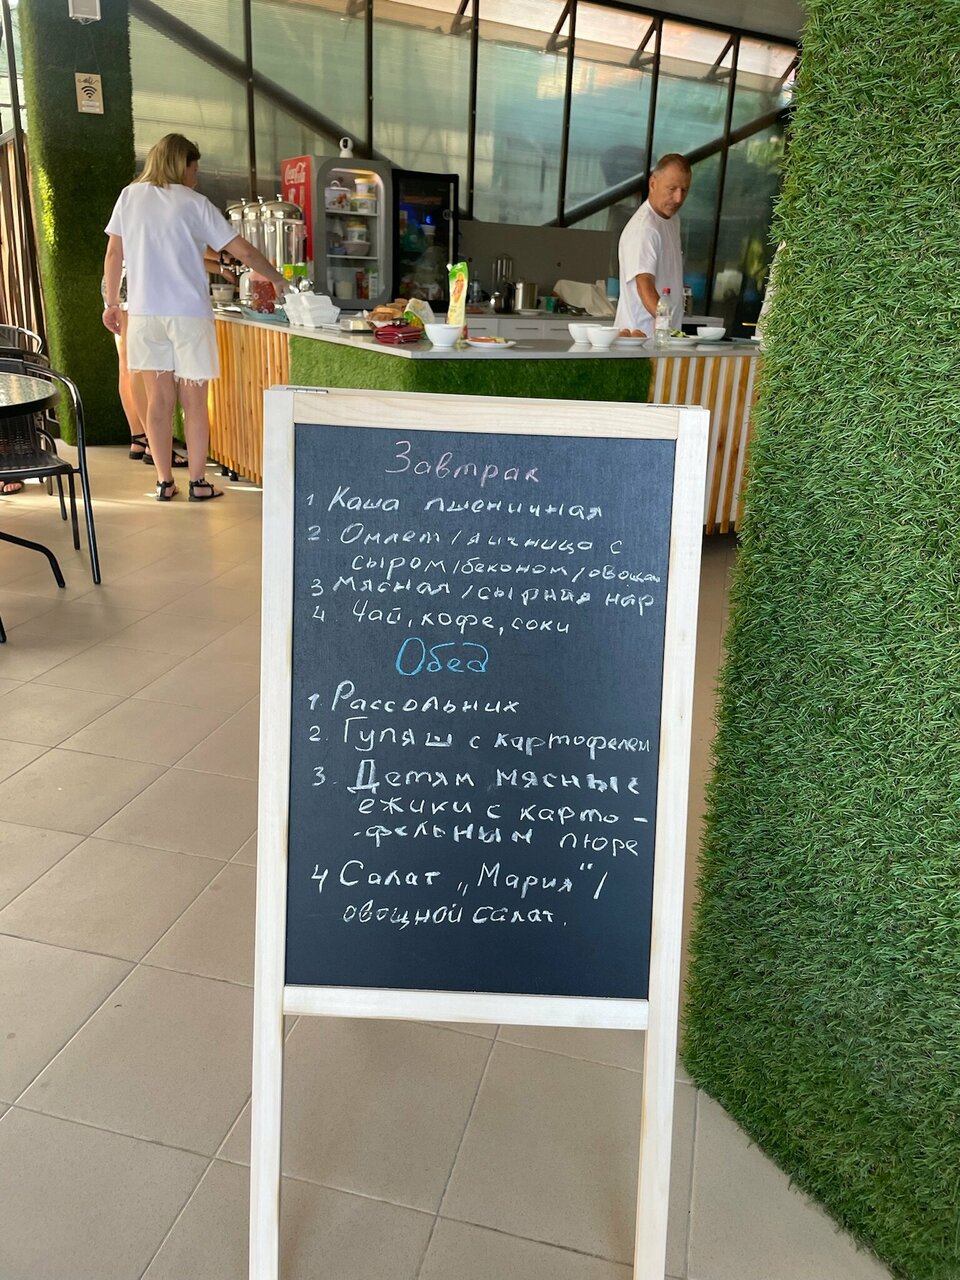 Coca-Cola
Завтрак
1 Каша пшеничная
2. Омлет/яичница с
сыром/беконом/овощам
3 Мясная/сырная нар
4 Чай, кофе, соки
Обед
1. Рассольник
2. Гуляш с картофелем
3. Детям мясные
ежики с карто-
-фельным пюре
4 Салат „Мария“/
овощной салат.